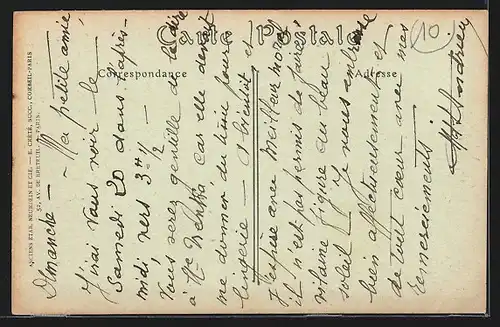 Carte Postale
Correspondance
Adresse
10
ANCIENS ÉTAB. NEURDEIN ET CIE. — E. CRÉTÉ, SUCC., CORBEIL-PARIS
52, AV. DE BRETEUIL, PARIS.
Dimanche — Ma petite amie
J'irai vous voir le
Samedi 20 dans l'après-
midi vers 3 H ½
Vous serez gentille de le dire
à Mme car elle devait
me donner du linon pour
lingerie — A bientôt et
J'espère avec meilleur moral
il n'est pas permis de faire
vilaine figure au beau
soleil — Je vous embrasse
bien affectueusement et
de tout cœur avec mes
remerciements —